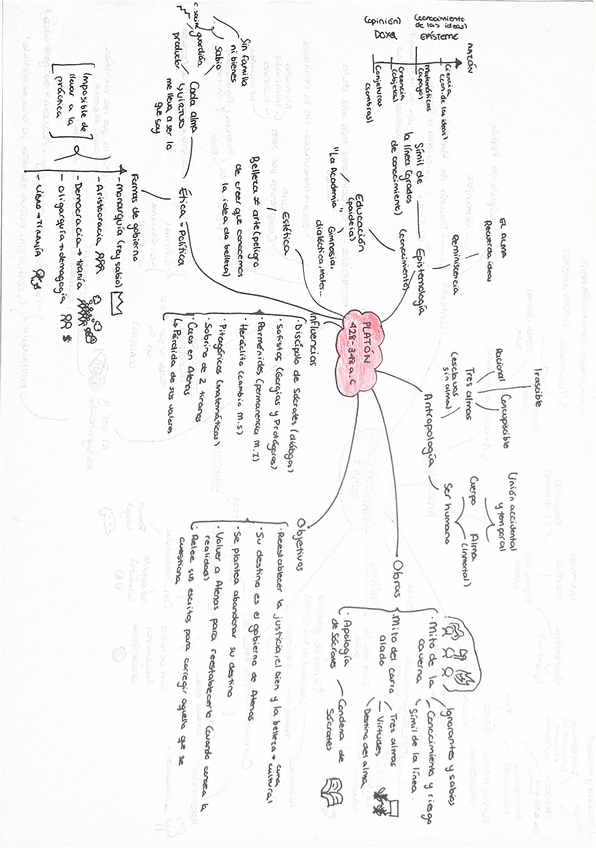 PLATÓN
428-348 a.C
Epistemología
(conocimiento)
Reminiscencia
EL ALMA
Recuerda ideas
Símil de
la línea (grados
de conocimiento)
RAZÓN
(conocimiento
de las ideas)
EPÍSTEME
(opinión)
DOXA
Ciencia
(con. de las ideas)
Matemáticas
Creencia
(objetos)
Conjeturas
(sombras)
Educación
(paideia)
"La Academia"
Gimnasia,
dialéctica, mates...
Estética
Belleza ≠ arte (peligro
de creer que conocemos
la idea de belleza)
Ética = Política
Cada alma
me lleva a ser lo
que soy
productor
guardián
sabio
Sin familia
ni bienes
Formas de gobierno
- Monarquía (rey sabio)
- Aristocracia
- Democracia → tiranía
- Oligarquía → demagogia
Imposible de
llevar a la
práctica
Influencias
· Discípulo de Sócrates (diálogos)
· Sofistas (Gorgias y Protágoras)
· Parménides (permanencia M.I)
· Heráclito (cambio M.S)
· Pitagóricos (matemáticas)
· Sobrino de 2 tiranos
· Caos en Atenas
↳ Pérdida de sus valores
Antropología
Tres almas
(esclavos
sin alma)
Racional
Concupiscible
Irascible
Ser humano
Cuerpo
Alma
(inmortal)
Unión accidental
y temporal
Obras
· Mito de la
caverna
Ignorantes y sabios
Conocimiento y riesgo
Símil de la línea
Mito del carro
alado
Tres almas
Virtudes
Destino del alma
· Apología
de Sócrates
Condena de
Sócrates
Objetivos
· Reestablecer la justicia, el bien y la belleza →
cultural
· Su destino es el gobierno de Atenas
· Se plantea abandonar su destino
· Volver a Atenas para reestablecerlo (cuando conozca la
realidad)
· Relee sus escritos para corregir aquello que se
cuestiona